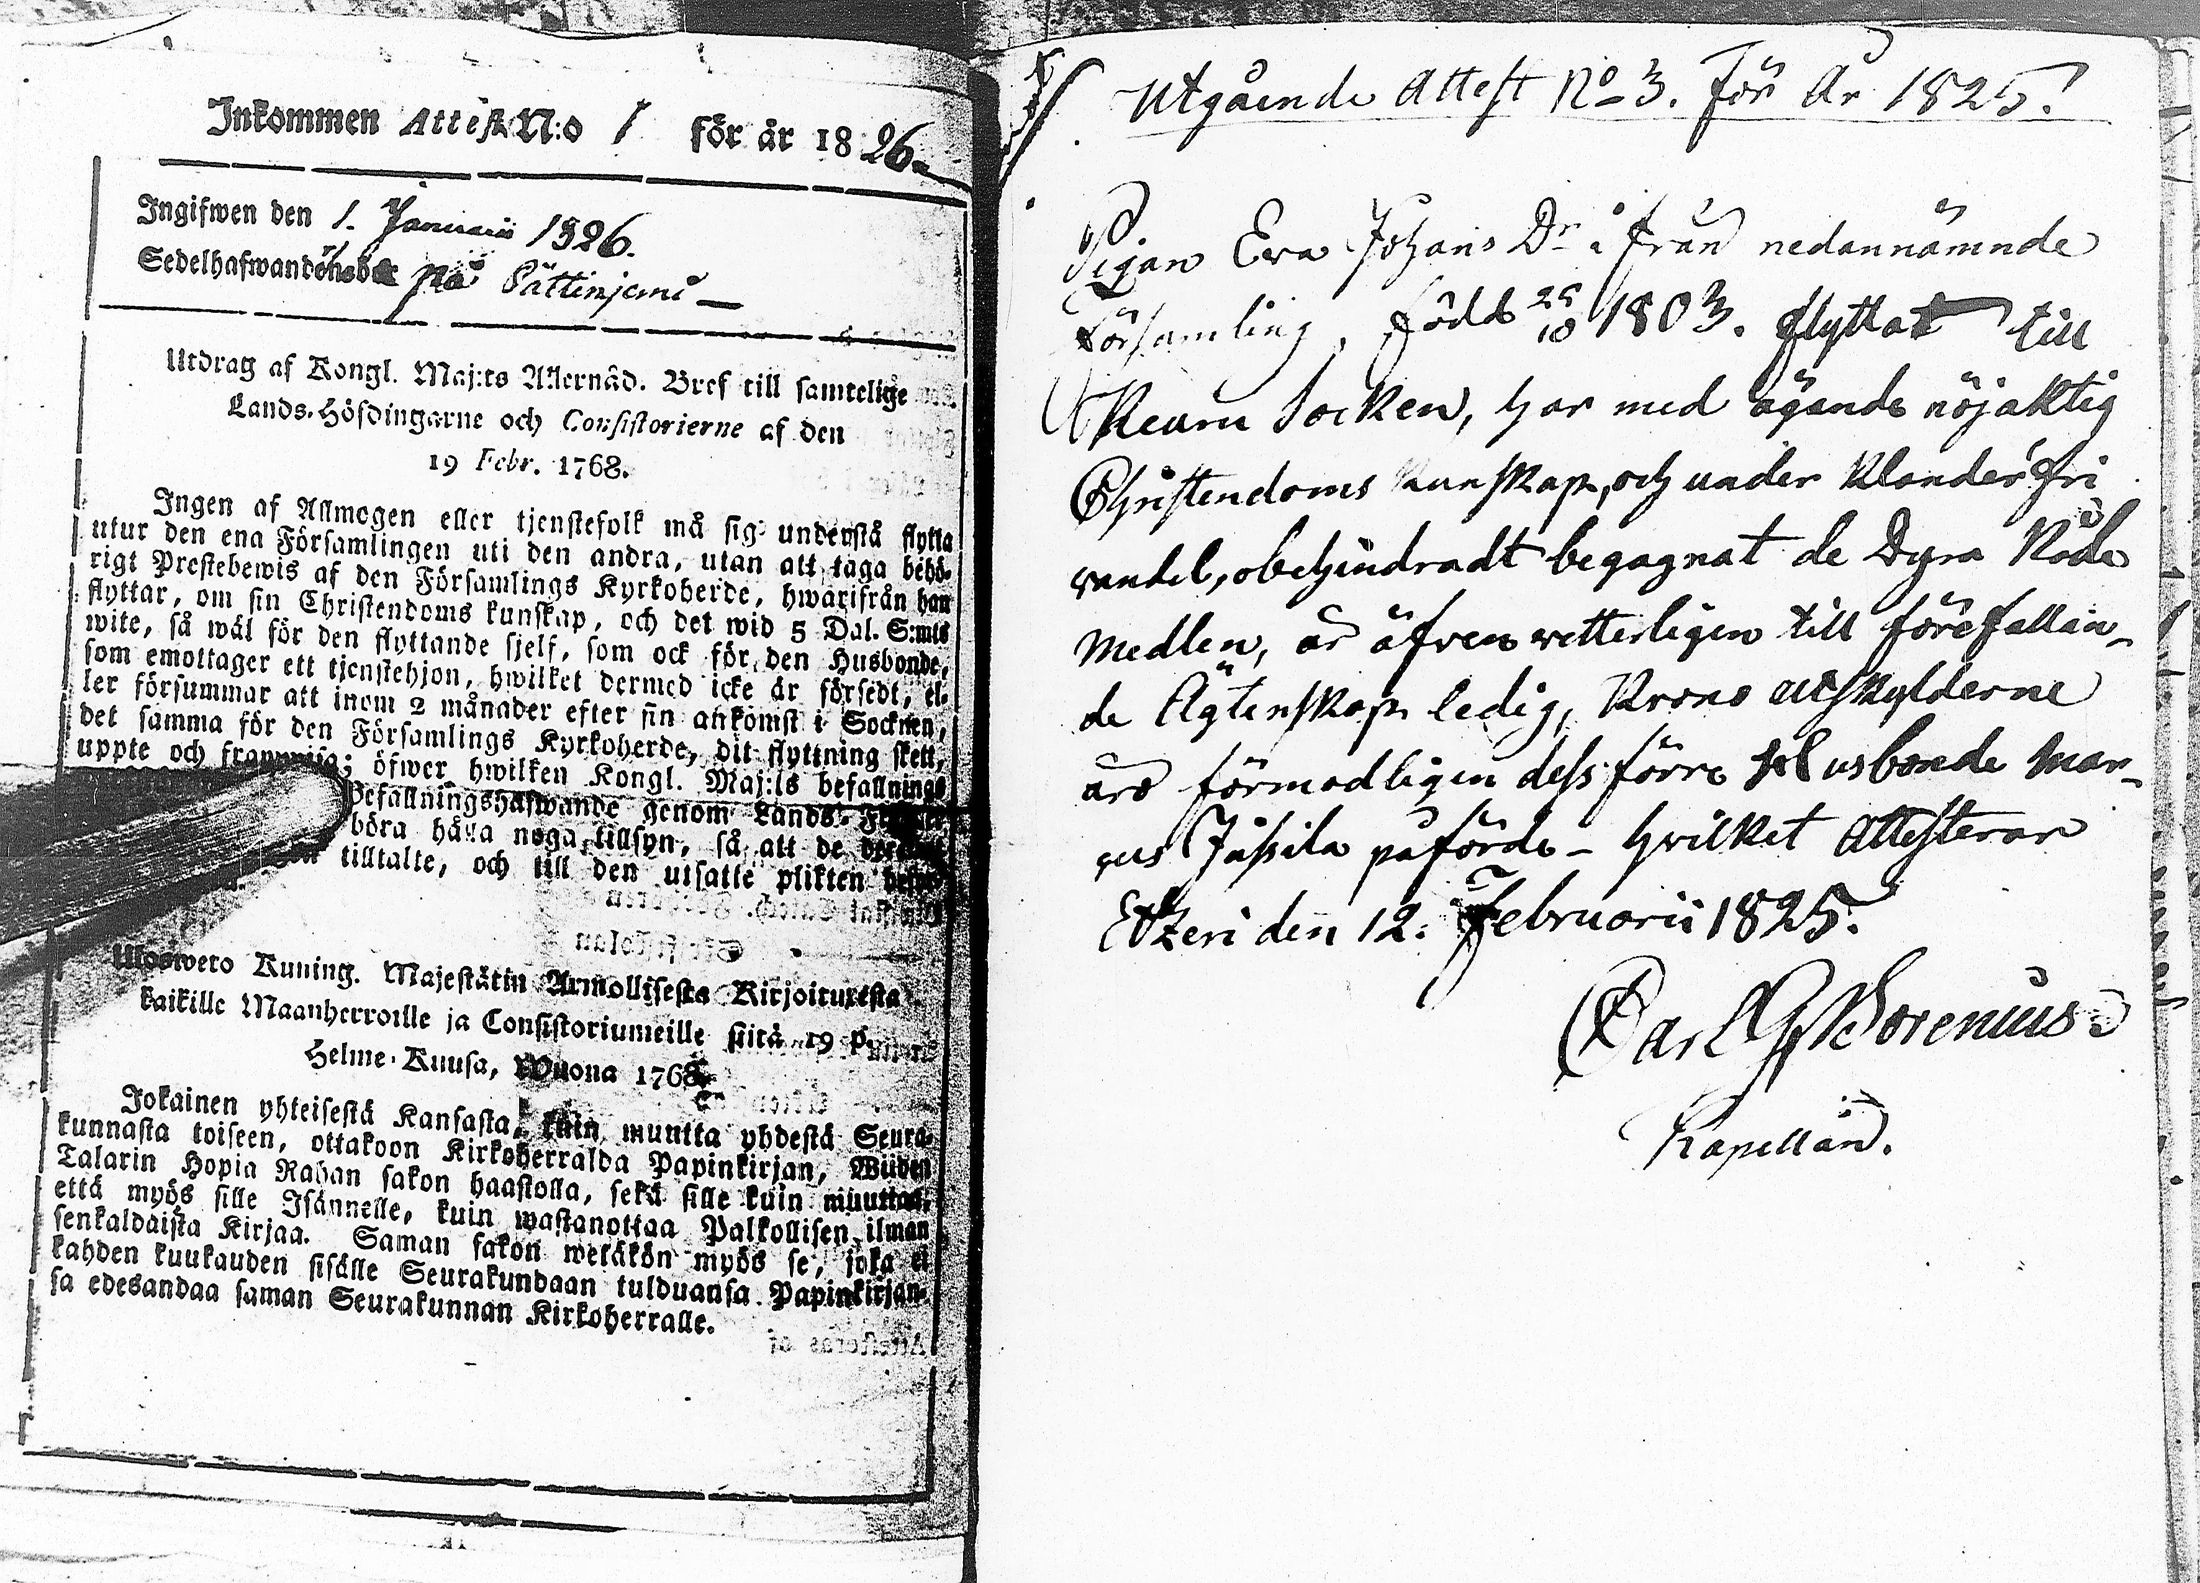 Inkommen Attest N:o 1 för år 1826.
Ingifwen den 1. Januarii 1826.
Sedelhafwanden på Pättinjemi
Utdrag af Kongl. Maj:ts Allernåd. Bref till samtelige
Lands-Höfdingarne och Consistorierne af den
19 Febr. 1768.
Ingen af Allmogen eller tjenstefolk må sig understå flytta
utur den ena Församlingen uti den andra, utan att taga behö-
rigt Prestebewis af den Församlings Kyrkoherde, hwarifrån han
flyttar, om sin Christendoms kunskap, och det wid 5 Dal. S:mts
wite, så wäl för den flyttande sjelf, som ock för den Husbonde,
som emottager ett tjenstehjon, hwilket dermed icke är försedt, el-
ler försummar att inom 2 månader efter sin ankomst i Socknen,
det samma för den Församlings Kyrkoherde, dit flyttning skett,
uppte och framwisa; öfwer hwilken Kongl. Maj:ts befallnings
Befallningshafwande genom Lands-
böra hålla noga tillsyn, så att de
tilltalte, och till den utsatte plikten
Uloswero Kuning. Majestätin Armollisesta Kirjoituxesta
kaikille Maanherroille ja Consistoriumeille siitä 19 p.
Helme-Kuusa, Wuona 1768.
Jokainen yhteisestä Kansasta, kuin muutta yhdestä Seura-
kunnasta toiseen, ottakoon Kirkoherralda Papinkirjan, Wiiden
Talarin Hopia Rahan sakon haastolla, sekä sille kuin muuttaa,
että myös sille Isännelle, kuin wastanottaa Palkollisen ilman
senkaldaista Kirjaa. Saman sakon wetäkön myös se, joka ei
kahden kuukauden sisälle Seurakundaan tulduansa Papinkirjan-
sa edesandaa saman Seurakunnan Kirkoherralle.
Utgående Attest No 3. För År 1825.
Pigan Eva Johans Dr ifrån nedannämnde
Församling, född 25/10 1803. flyttat till
Keuru Socken, har med ägande nöjaktig
Christendoms kunskap, och under klander fri
vandel, obehindradt begagnat de Dyra Nåde
medlen, är äfven vetterligen till förefallan-
de Ägtenskap ledig, Krono utskylderne
äro förmodligen dess förre Husbonde Mar-
cus Jässila påförde - hvilket Attesterar
Etzeri den 12. Februarii 1825.
Carl G. Borenius
Kapellan.